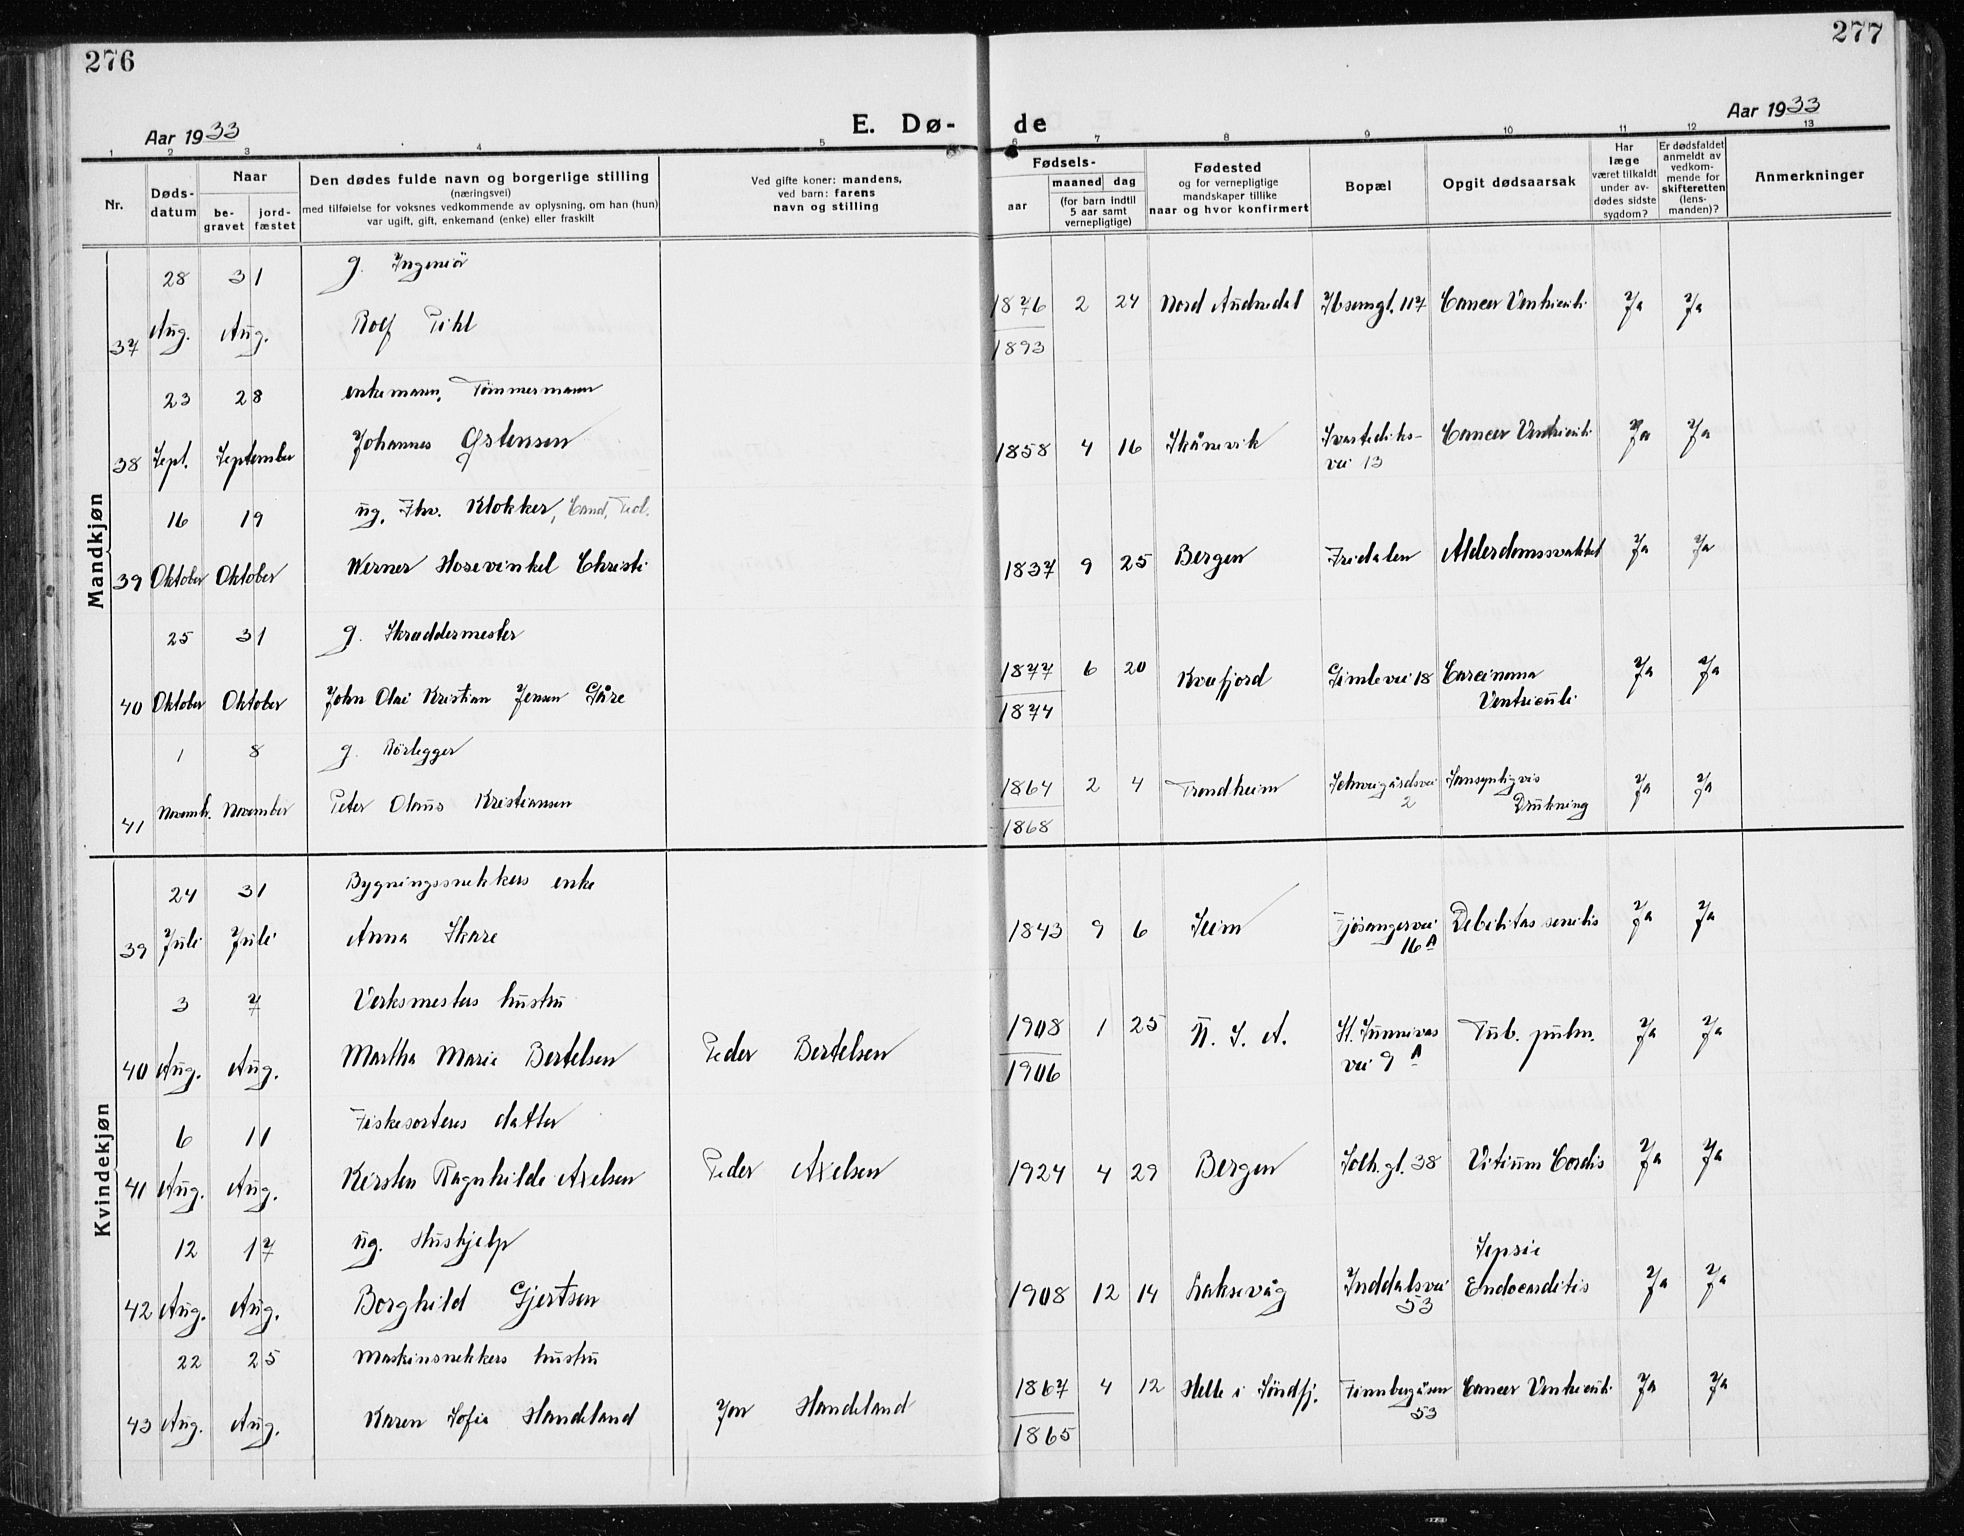 276
277
Aar 1933
E. Dø- de
Aar 1933
1 2 3 4 5 6 7 8 9 10 11 12 13
Nr.
Døds-
datum
Naar
be-
gravet
jord-
fæstet
Den dødes fulde navn og borgerlige stilling
(næringsvei)
med tilføielse for voksnes vedkommende av oplysning, om han (hun)
var ugift, gift, enkemand (enke) eller fraskilt
Ved gifte koner: mandens,
ved barn: farens
navn og stilling
Fødsels-
aar
maaned dag
(for barn indtil
5 aar samt
vernepligtige)
Fødested
og for vernepligtige
mandskaper tillike
naar og hvor konfirmert
Bopæl
Opgit dødsaarsak
Har
læge
været tilkaldt
under av-
dødes sidste
sygdom?
Er dødsfaldet
anmeldt av
vedkom-
mende for
skifteretten
(lens-
manden)?
Anmerkninger
Mandkjøn
28 31 g. Ingeniör
37 Aug. Aug. Rolf Pihl 1876 2 24 Nord Audnedal Ibsensgt. 117 Cancer Ventriculi Ja Ja
1893
23 28 enkemann, Tömmermann
38 Sept. September Johannes Østensen 1858 4 16 Skånevik Svartediks- Cancer Ventriculi Ja Ja
vei 13
16 19 ug. Fhv. Klokker, Cand. Teol.
39 Oktober Oktober Werner Hosevinkel Christi 1837 9 25 Bergen Fridalen Alderdomssvakhet Ja Ja
25 31 g. Skreddermester
40 Oktober Oktober John Olai Kristian Jensen Gåre 1877 6 20 Kvafjord Gimlevei 18 Carcinoma Ja Ja
1874 Ventriculi
1 8 g. Rörlegger
41 Novemb. November Peter Olaus Kristiansen 1864 2 4 Trondheim Schweigårdsvei Sansynligvis Ja Ja
1868 2 Drukning
Kvindekjøn
24 31 Bygningssnekkers enke
39 Juli Juli Anna Skare 1843 9 6 Seim Fjösangervei Debilitas senilis Ja Ja
16 A
3 7 Verksmesters hustru
40 Aug. Aug. Martha Marie Bertelsen Peder Bertelsen 1908 1 25 U. S. A. St. Sunnivas Tub. pulm. Ja Ja
1906 vei 9 A
6 11 Fiskesorteres datter
41 Aug. Aug. Kirsten Ragnhilde Axelsen Peder Axelsen 1924 4 29 Bergen Solh. gt. 38 Vitium Cordis Ja Ja
12 17 ug. Hushjelp Sepsis
42 Aug. Aug. Borghild Gjertsen 1908 12 14 Laksevåg Inddalsvei Endocarditis Ja Ja
53
22 25 Maskinsnekkers hustru
43 Aug. Aug. Karen Sofia Handeland Jon Handeland 1867 4 12 Helle i Söndfj. Finnbergåsen Cancer Ventriculi Ja Ja
1865 53